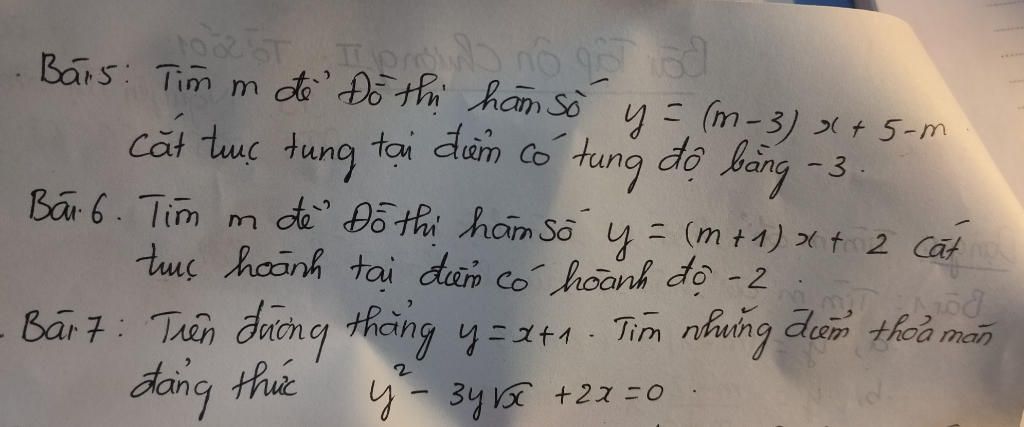 Bài 5: Tìm m để Đồ thị hàm số y = (m-3) x + 5-m
cắt trục tung tại điểm có tung độ bằng -3.
Bài 6. Tìm m để Đồ thị hàm số y = (m+1) x + 2 cắt
trục hoành tại điểm có hoành độ -2.
Bài 7: Trên đường thẳng y = x+1. Tìm những điểm thỏa mãn
đẳng thức y² - 3y√x + 2x = 0.